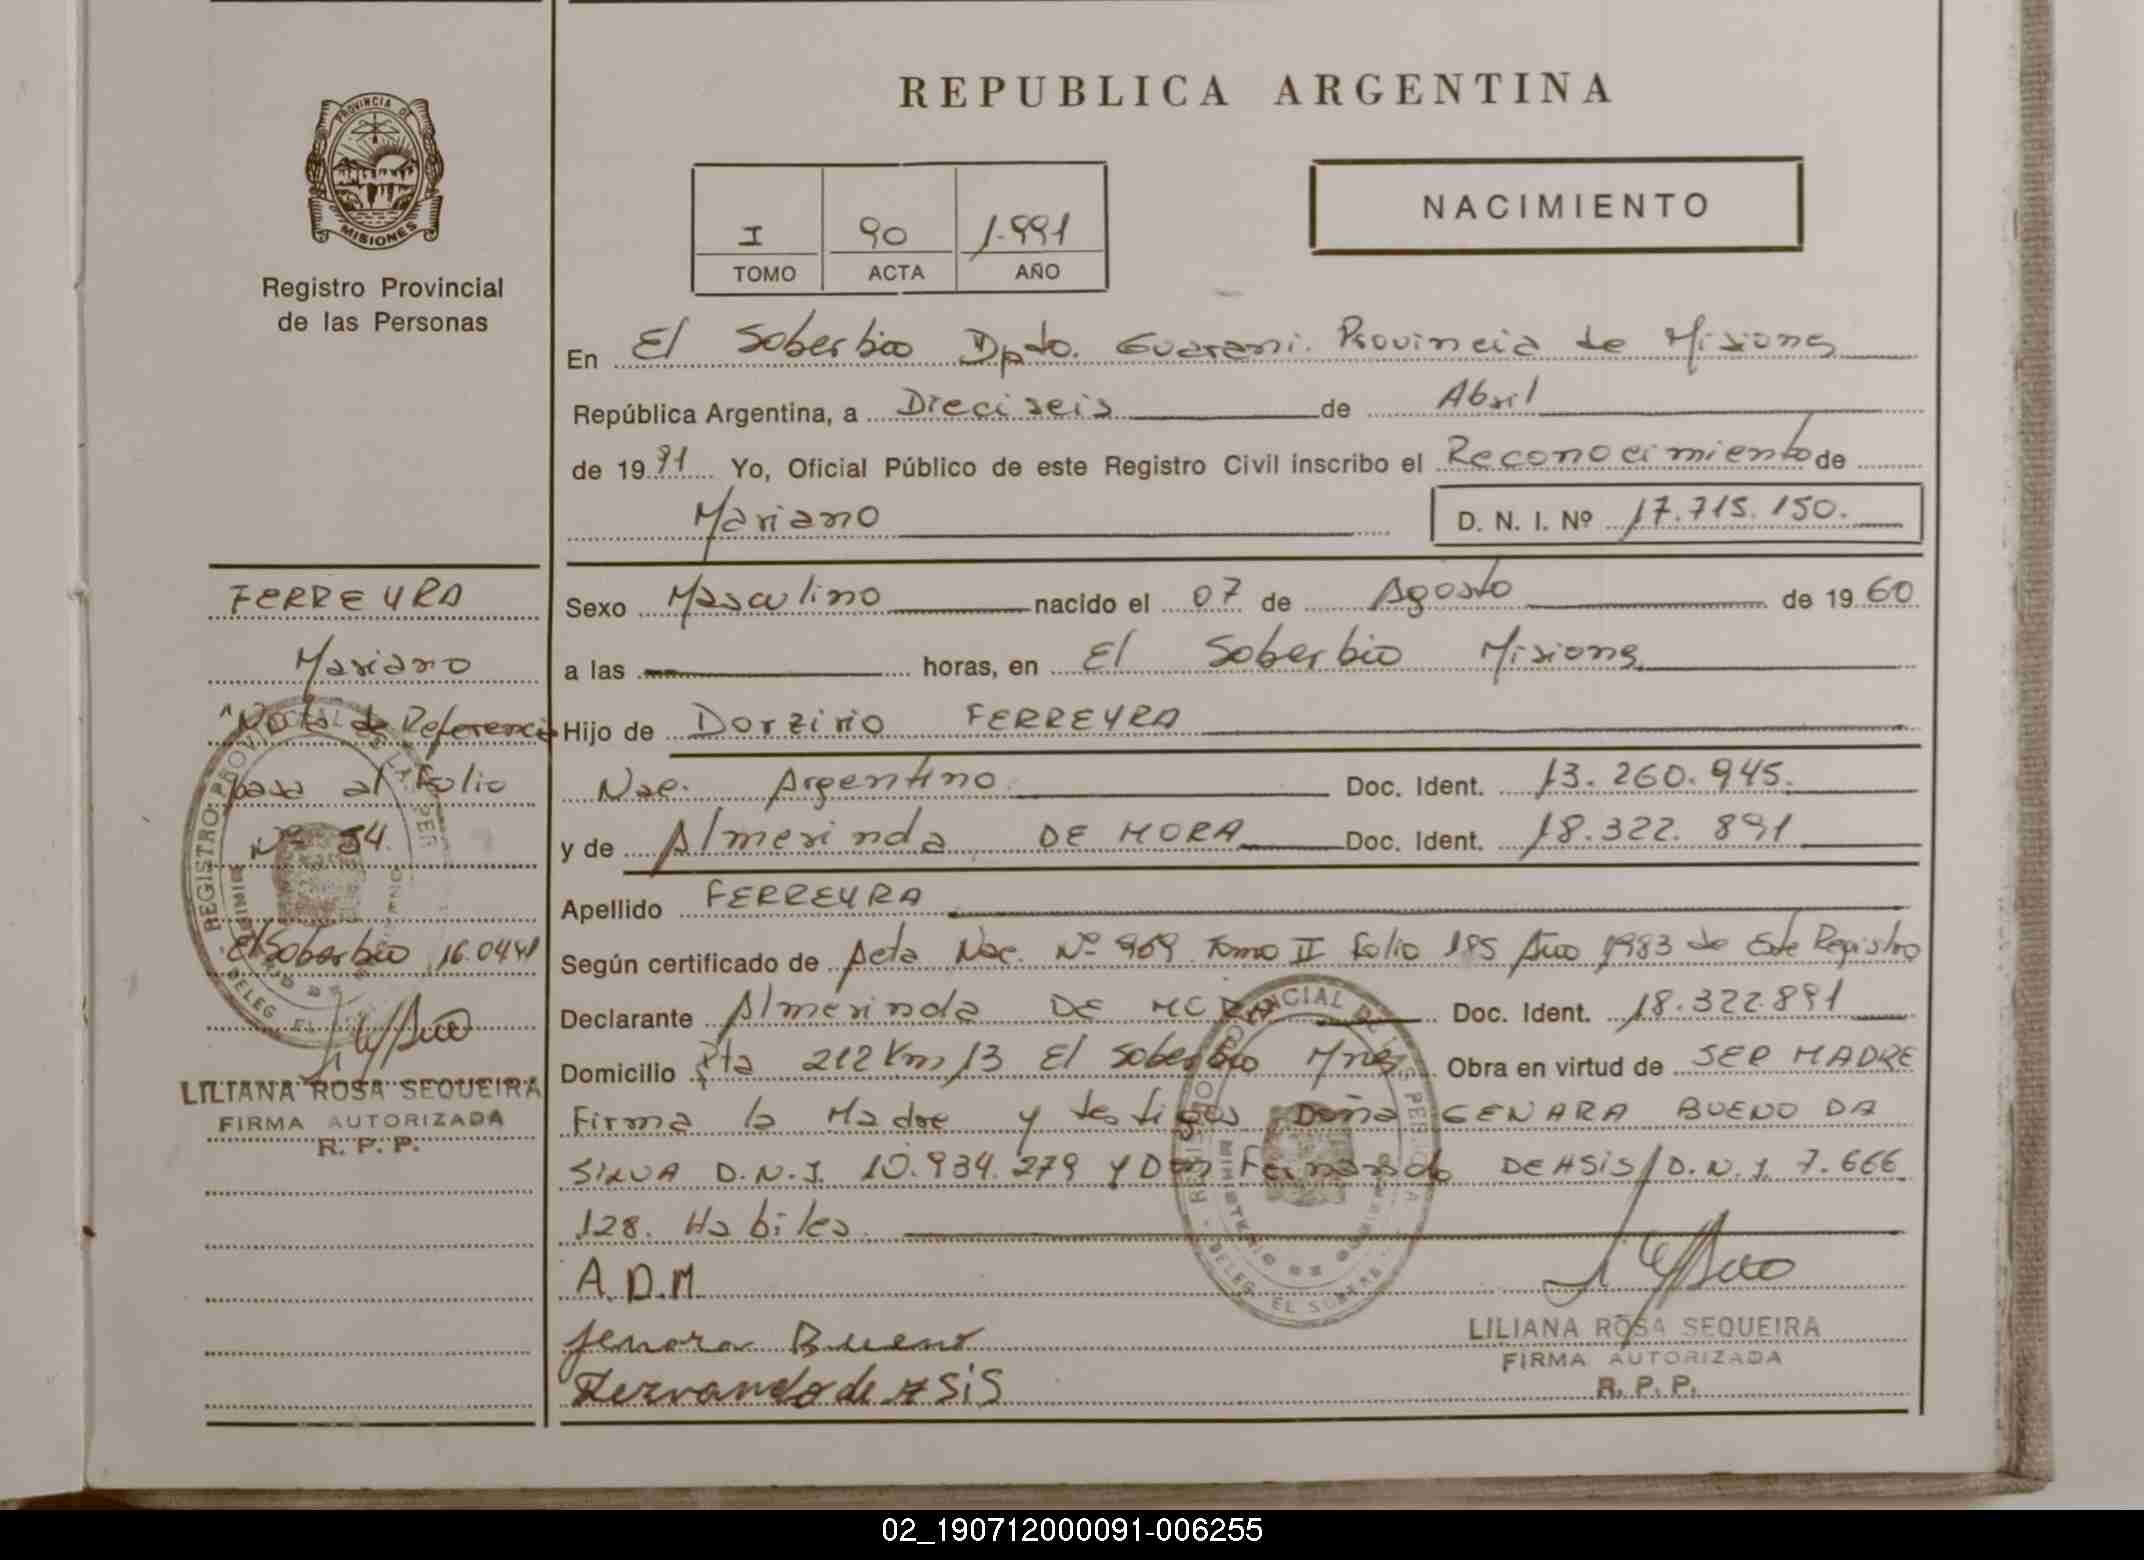 REPUBLICA ARGENTINA
PROVINCIA DE
MISIONES
Registro Provincial
de las Personas
I 90 1.991
TOMO ACTA AÑO
NACIMIENTO
En El Soberbio Dpto. Guarani. Provincia de Misiones
República Argentina, a Dieciseis de Abril
de 1991 Yo, Oficial Público de este Registro Civil inscribo el Reconocimiento de
Mariano D. N. I. Nº 17.715.150.
Sexo Masculino nacido el 07 de Agosto de 1960
a las horas, en El Soberbio Misiones
Hijo de Dorzirio FERREYRA
Nac. Argentino Doc. Ident. 13.260.945.
y de Almerinda DE MORA Doc. Ident. 18.322.891
Apellido FERREYRA
Según certificado de Acta Nac. Nº 969 Tomo II Folio 185 Año 1983 de Este Registro
Declarante Almerinda DE MORA Doc. Ident. 18.322.891
Domicilio Rta 212 Km 13 El Soberbio Mnes Obra en virtud de SER MADRE
Firma la Madre y testigos Doña GENARA BUENO DA
SILVA D.N.I. 10.934.279 y Don Fernando DE ASIS D.N.I. 7.666
128. Habiles
A.D.M
Jenara Bueno
Fernando de ASiS
LILIANA ROSA SEQUEIRA
FIRMA AUTORIZADA
R. P. P.
FERREYRA
Mariano
"Nota de Referencia
pasa al Folio
Nº 54.
El Soberbio 16.04.91
LILIANA ROSA SEQUEIRA
FIRMA AUTORIZADA
R. P. P.
02_190712000091-006255